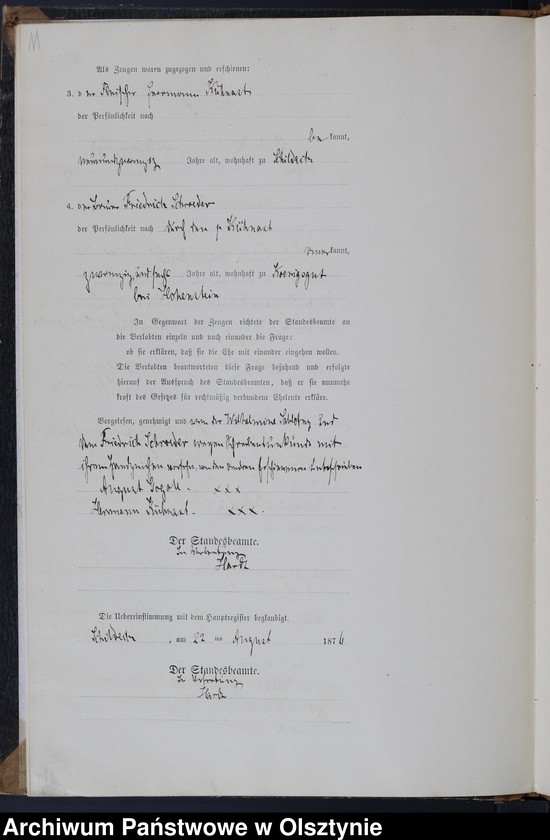 Als Zeugen waren zugezogen und erschienen:
3. d er Fleischer Herrmann Kühnast
der Persönlichkeit nach
be kannt,
neunundzwanzig Jahre alt, wohnhaft zu Schildeck
4. der Bauer Friedrich Schroeder
der Persönlichkeit nach durch den p Kühnast
kannt,
Jahre alt, wohnhaft zu Koenigsgut
bei Hohenstein
In Gegenwart der Zeugen richtete der Standesbeamte an
die Verlobten einzeln und nach einander die Frage:
ob sie erklären, daß sie die Ehe mit einander eingehen wollen.
Die Verlobten beantworteten diese Frage bejahend und erfolgte
hierauf der Ausspruch des Standesbeamten, daß er sie nunmehr
kraft des Gesetzes für rechtmäßig verbundene Eheleute erkläre.
Vorgelesen, genehmigt und von der Wilhelmine und
dem Friedrich Schroeder wegen Schreibensunkunde mit
ihrem Handzeichen versehn, von den andern Erschienenen unterschrieben
August xxx
Hermann Kühnast. xxx.
Der Standesbeamte.
In Vertretung
Hardt
Die Uebereinstimmung mit dem Hauptregister beglaubigt.
Schildeck, am 22 ten August 1876
Der Standesbeamte.
In Vertretung
Hardt
Archiwum Państwowe w Olsztynie